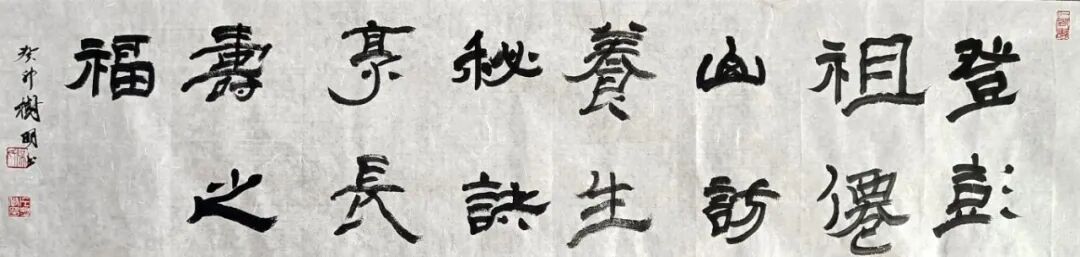 登彭
祖僊
山訪
養生
秘訣
享長
壽之
福
癸卯樹明书